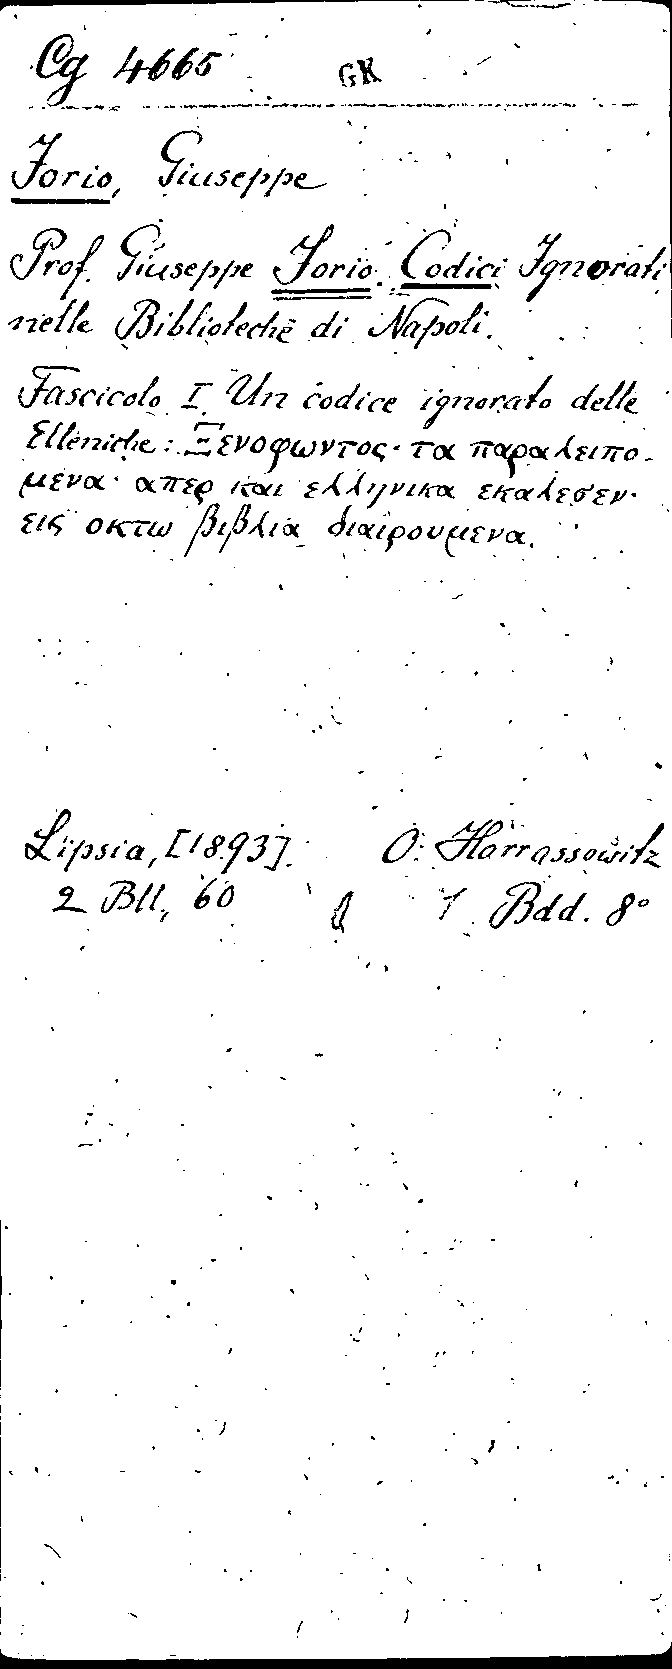 Cg 4665 GK
Jorio, Giuseppe
Prof. Giuseppe Jorio. Codici Ignorati
nelle Biblioteche di Napoli.
Fascicolo I. Un codice ignorato delle
Elleniche: Ξενοφωντος· τα παραλειπο-
μενα· απερ και ελληνικα εκαλεσεν·
εις οκτω βιβλια διαιρουμενα.
Lipsia, [1893]. O. Harrassowitz
2 Bll., 60 1 Bdd. 8°